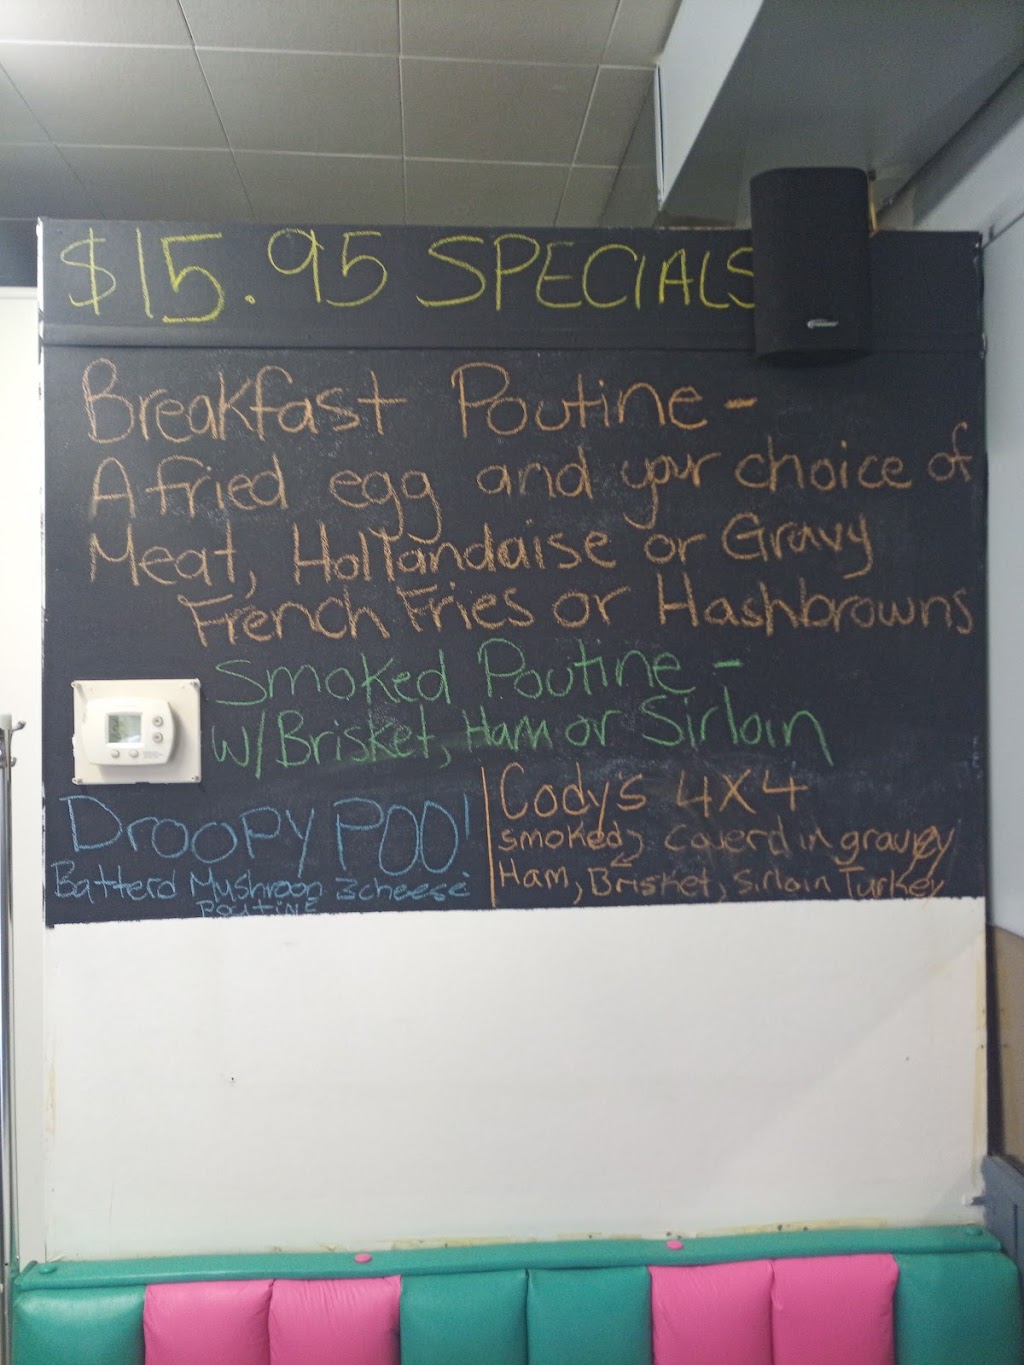 $15.95 SPECIALS
Breakfast Poutine -
A fried egg and your choice of
Meat, Hollandaise or Gravy
French Fries or Hashbrowns
Smoked Poutine -
w/Brisket, Ham or Sirloin
Droopy POO!
Batterd Mushroon 3cheese
POUTINE
Cody's 4X4
Smoked, Coverd in gravey
Ham, Brisket, Sirloin Turkey